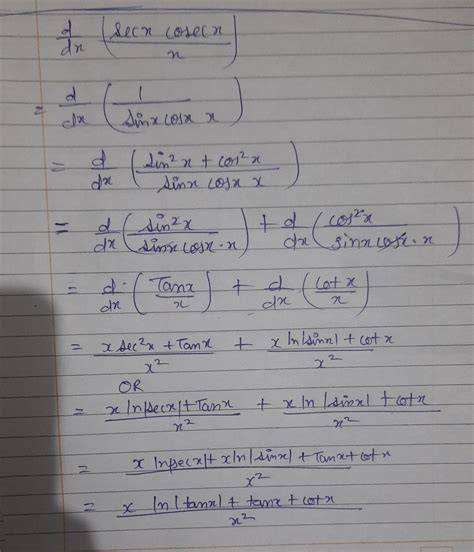 d/dx (secx cosecx / x)
= d/dx (1 / sinx cosx x)
= d/dx (sin²x + cos²x / sinx cosx x)
= d/dx (sin²x / sinx cosx · x) + d/dx (cos²x / sinx cosx · x)
= d/dx (Tanx / x) + d/dx (cot x / x)
= x sec²x + Tanx / x² + x ln|sinx| + cotx / x²
OR
= x ln|secx| + Tanx / x² + x ln|sinx| + cotx / x²
= x ln|secx| + x ln|sinx| + Tanx + cotx / x²
= x ln|tanx| + tanx + cotx / x²